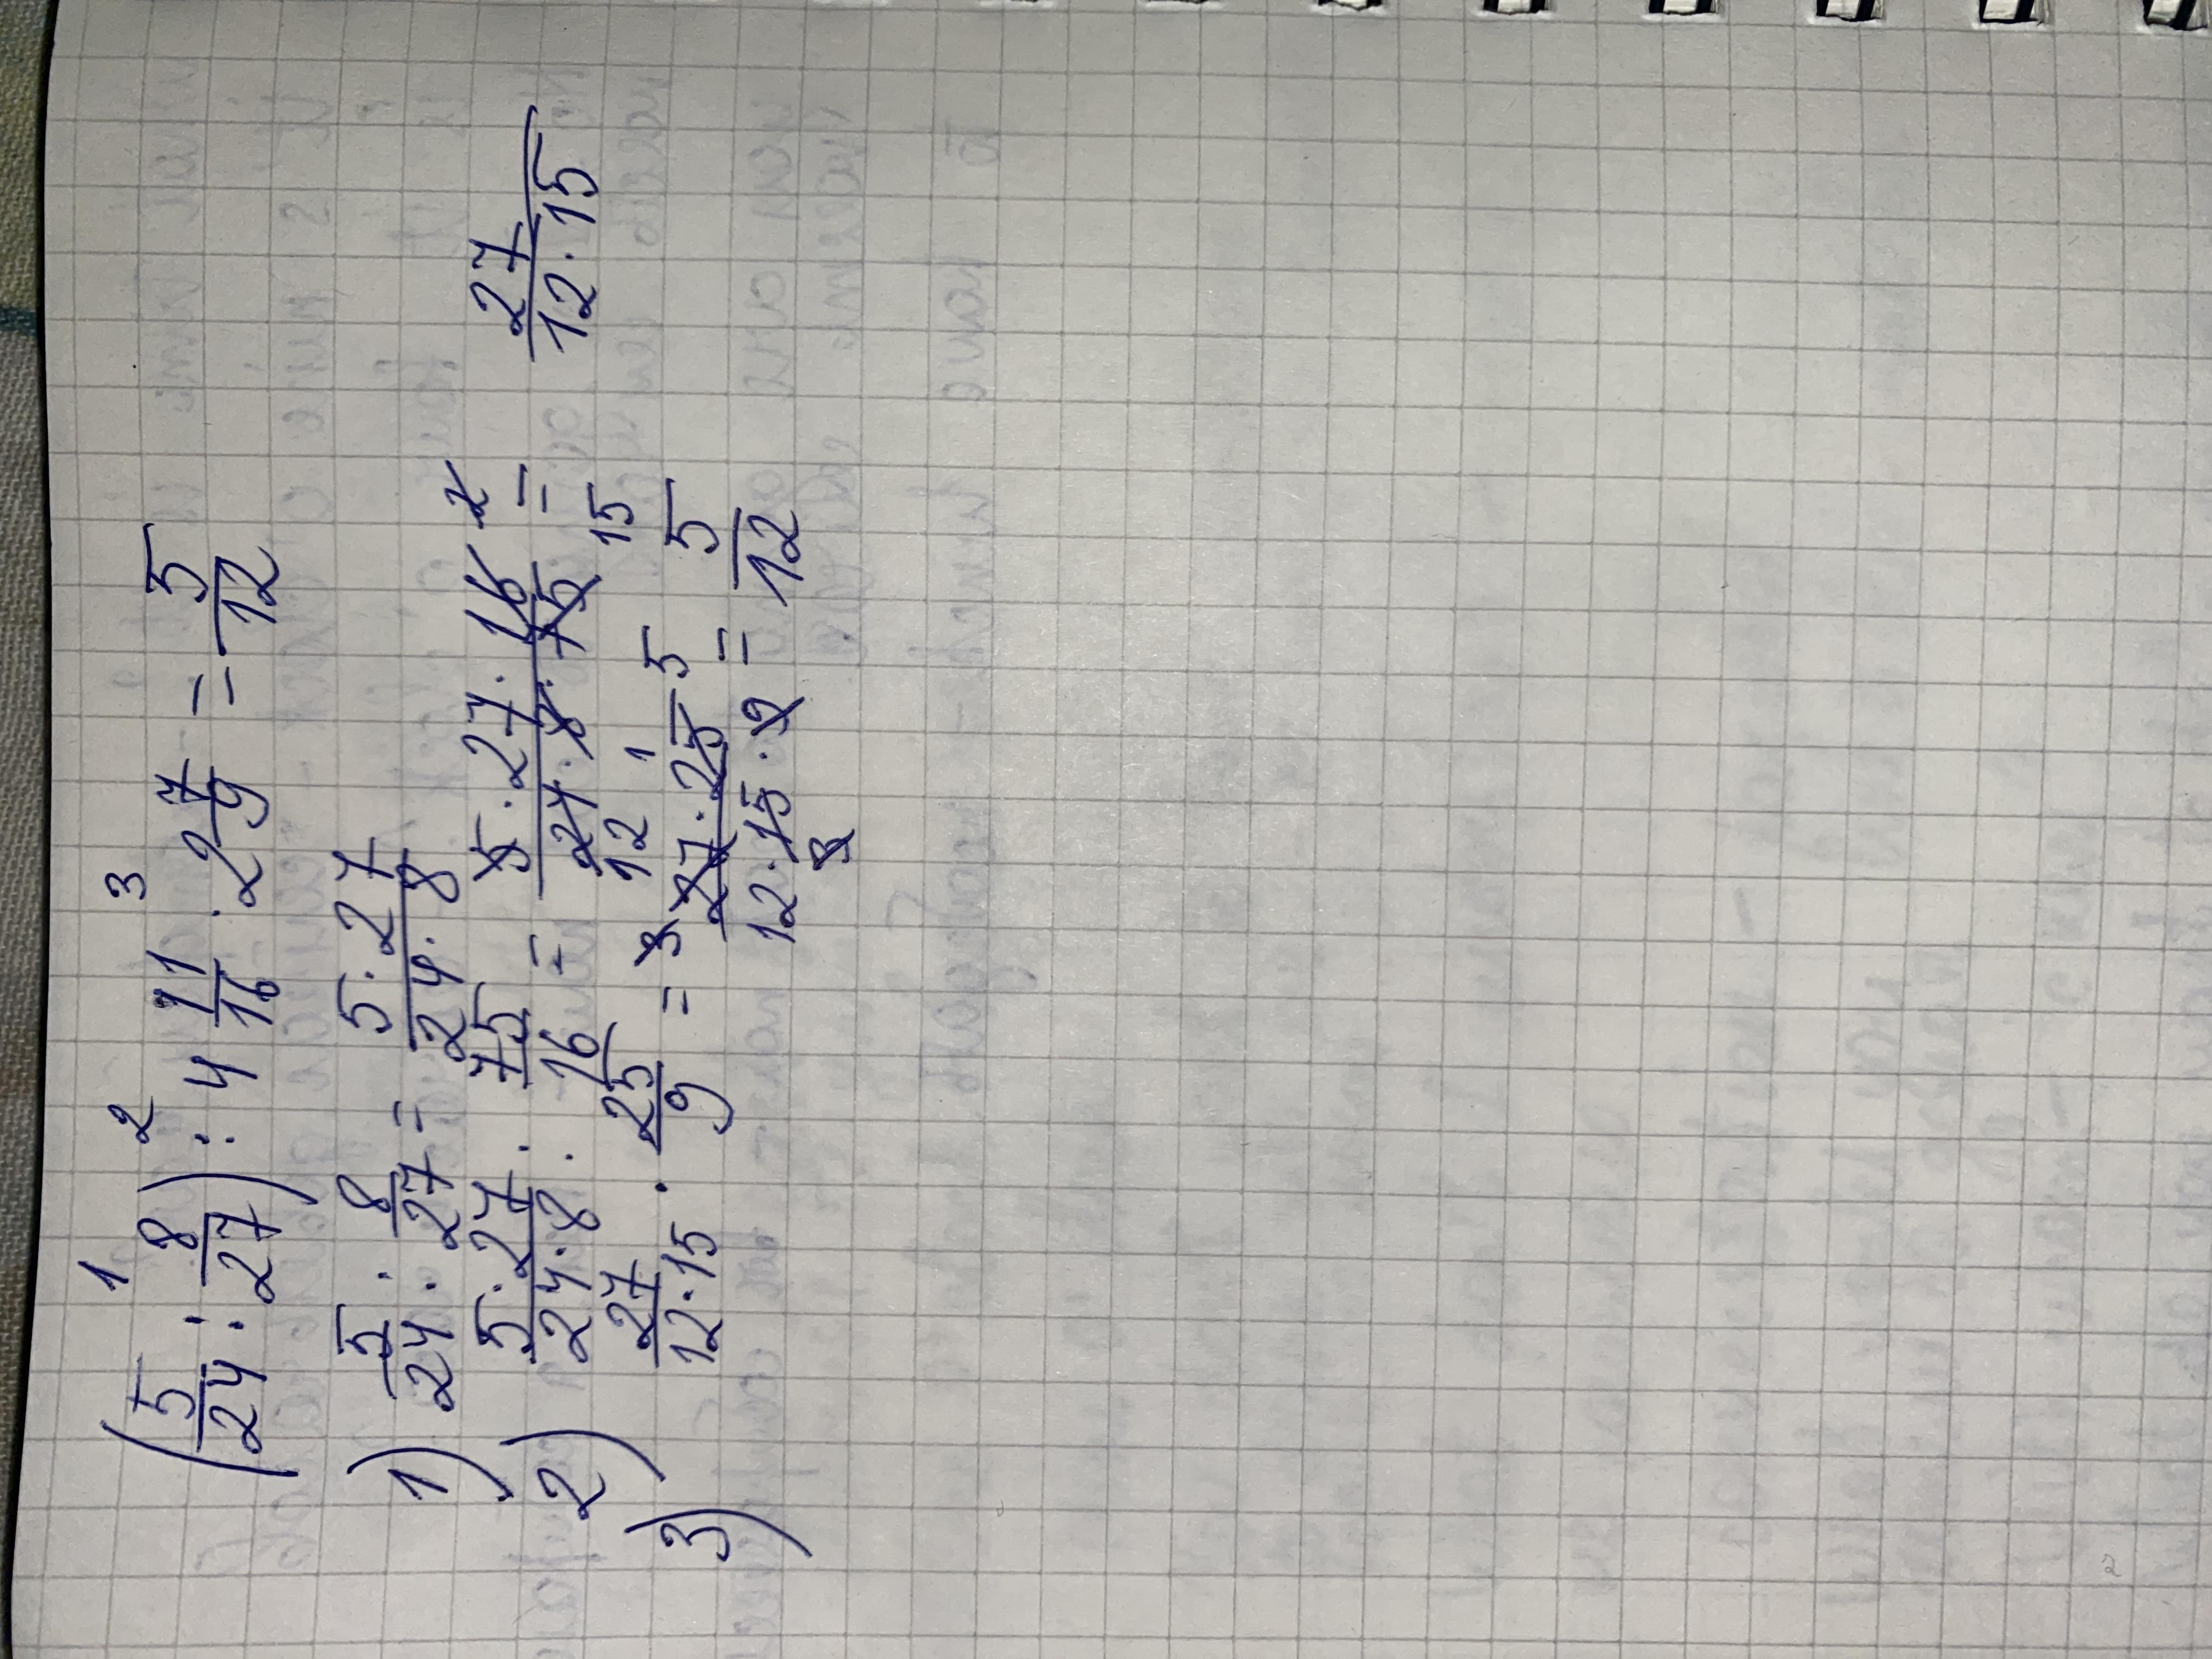 1 2 3
(5/24 : 8/27) : 4 11/16 · 2 7/9 = 5/12
1) 5/24 : 8/27 = 5·27/24·8
2) 5·27/24·8 : 75/16 = 5·27·16/24·8·75 = 27/12·15
2
12 1 15
3) 27/12·15 · 25/9 = 27·25/12·15·9 = 5/12
3 5
3